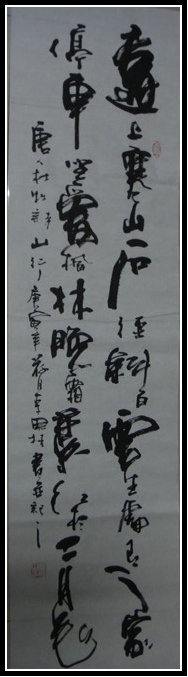 遠上寒山石径斜白雲生處有人家
停車坐愛枫林晚霜葉红於二月花
唐人杜牧诗山行庚寅年月書